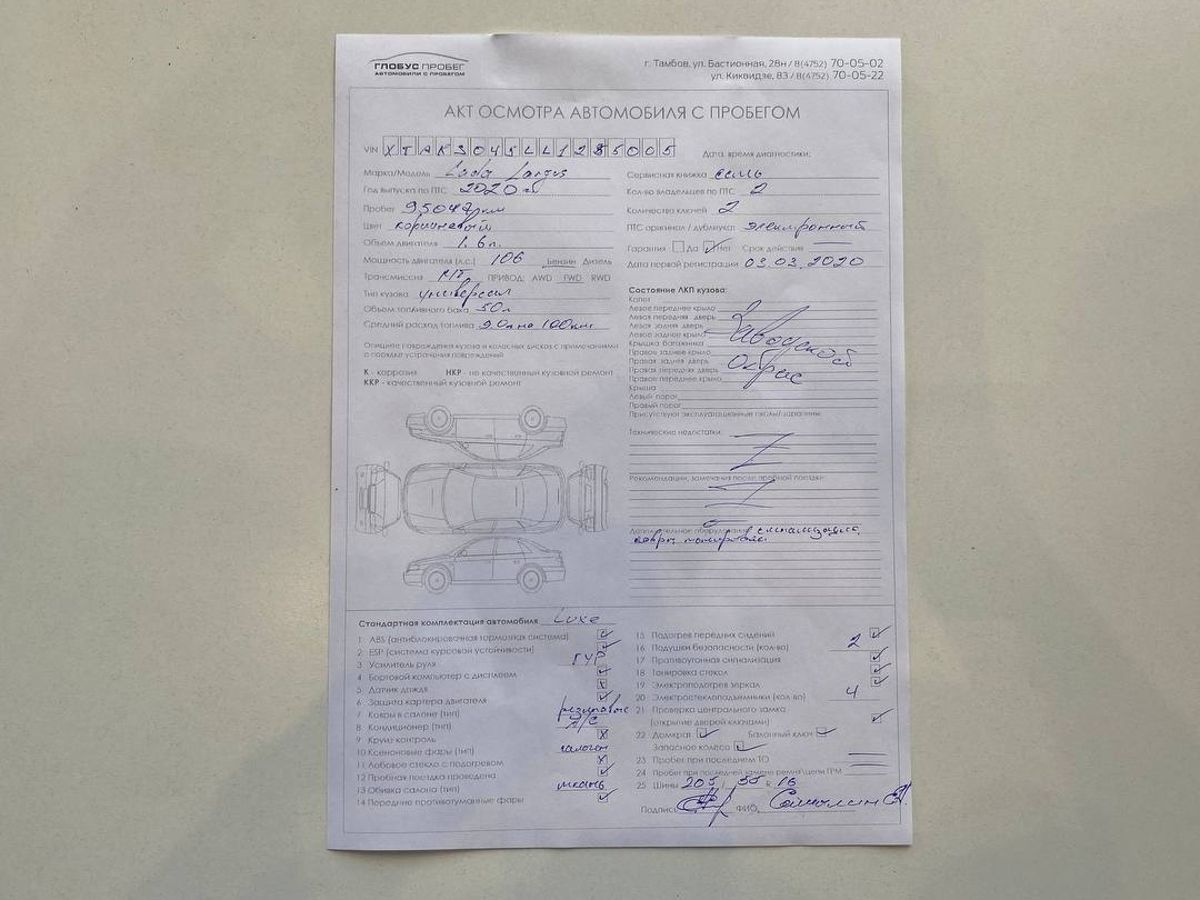 ГЛОБУС ПРОБЕГ
АВТОМОБИЛИ С ПРОБЕГОМ
г. Тамбов, ул. Бастионная, 28н / 8(4752) 70-05-02
ул. Киквидзе, 83 / 8(4752) 70-05-22
АКТ ОСМОТРА АВТОМОБИЛЯ С ПРОБЕГОМ
VIN XTAKS045LL1285005
Дата, время диагностики:
Марка/Модель Lada Largus
Год выпуска по ПТС 2020 г
Пробег 95047 км
Цвет коричневый
Объем двигателя 1.6 л.
Мощность двигателя (л.с.) 106 Бензин Дизель
Трансмиссия МТ ПРИВОД: AWD FWD RWD
Тип кузова универсал
Объем топливного бака 50л
Средний расход топлива 9.0л на 100км
Опишите повреждения кузова и колесных дисков с примечаниями
о порядке устранения повреждений
К - коррозия НКР - не качественный кузовной ремонт
ККР - качественный кузовной ремонт
Сервисная книжка есть
Кол-во владельцев по ПТС 2
Количество ключей 2
ПТС оригинал / дубликат электронный
Гарантия Да Нет Срок действия
Дата первой регистрации 03.03.2020
Состояние ЛКП кузова:
Капот
Левое переднее крыло
Левая передняя дверь
Левая задняя дверь
Левое заднее крыло
Крышка багажника
Правое заднее крыло
Правая задняя дверь
Правая передняя дверь
Правое переднее крыло
Крыша
Левый порог
Правый порог
Заводской
окрас
Присутствуют эксплуатационные сколы/царапины
Технические недостатки:
Рекомендации, замечания после пробной поездки
Дополнительное оборудование сигнализация,
ковры
Стандартная комплектация автомобиля Luxe
1 ABS (антиблокировочная тормозная система)
2 ESP (система курсовой устойчивости)
3 Усилитель руля ГУР
4 Бортовой компьютер с дисплеем
5 Датчик дождя
6 Защита картера двигателя
7 Ковры в салоне (тип) резиновые
8 Кондиционер (тип) А/С
9 Круиз контроль
10 Ксеноновые фары (тип) галоген
11 Лобовое стекло с подогревом
12 Пробная поездка проведена
13 Обивка салона (тип) ткань
14 Передние противотуманные фары
15 Подогрев передних сидений
16 Подушки безопасности (кол-во) 2
17 Противоугонная сигнализация
18 Тонировка стекол
19 Электроподогрев зеркал
20 Электростеклоподъемники (кол-во) 4
21 Проверка центрального замка
(открытие дверей ключами)
22 Домкрат Балонный ключ
Запасное колесо
23 Пробег при последнем ТО
24 Пробег при последней замене ремня\цепи ГРМ
25 Шины 205 / 55 R 16
Подпись ФИО